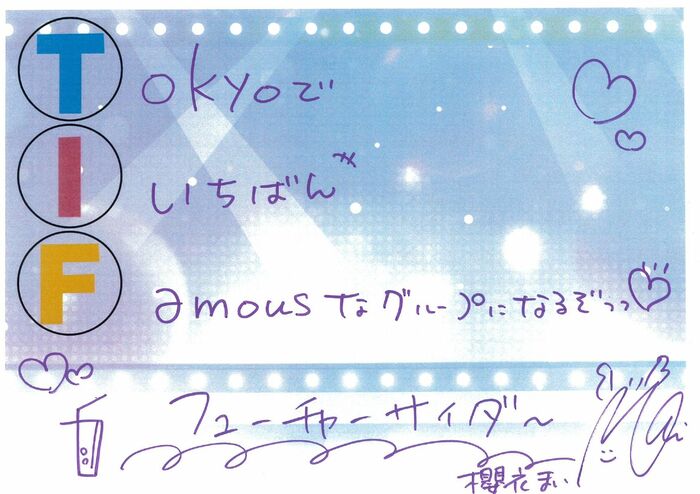 Tokyoで
Iいちばん
Famousなグループになるぞっっ
フューチャーサイダー
櫻衣まい
Mai